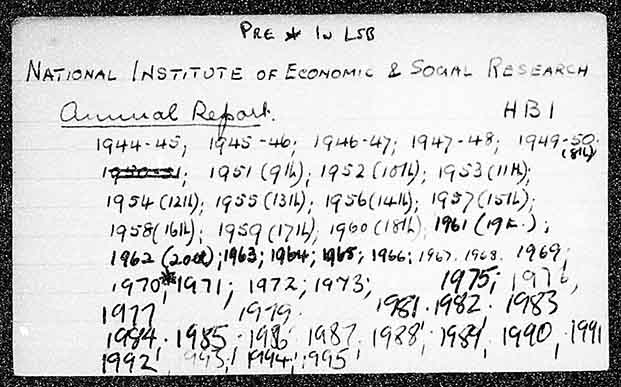 PRE * IN LSB
NATIONAL INSTITUTE OF ECONOMIC & SOCIAL RESEARCH
Annual Report. HB1
1944-45; 1945-46; 1946-47; 1947-48; 1949-50 (8th)
1950-51; 1951 (9th); 1952 (10th); 1953 (11th);
1954 (12th); 1955 (13th); 1956 (14th); 1957 (15th);
1958 (16th); 1959 (17th); 1960 (18th); 1961 (19th);
1962 (20th); 1963; 1964; 1965; 1966; 1967. 1968. 1969;
1970*, 1971; 1972; 1973; 1975; 1976,
1977 1979. 1981. 1982. 1983
1984. 1985. 1986 1987. 1988, 1989, 1990, 1991
1992, 1993; 1994; 1995